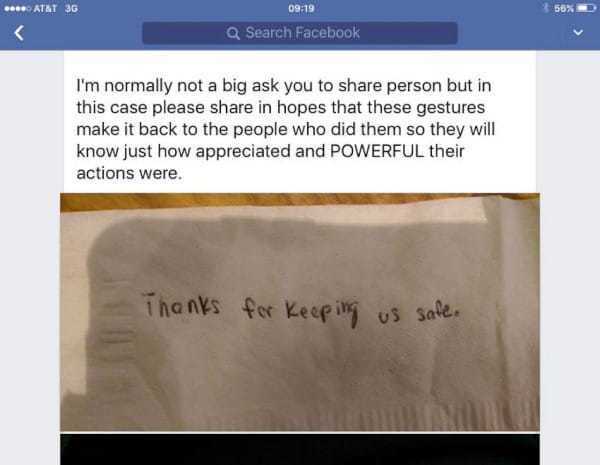 AT&T 3G 09:19 56%
Search Facebook
I'm normally not a big ask you to share person but in
this case please share in hopes that these gestures
make it back to the people who did them so they will
know just how appreciated and POWERFUL their
actions were.
Thanks for keeping us safe.